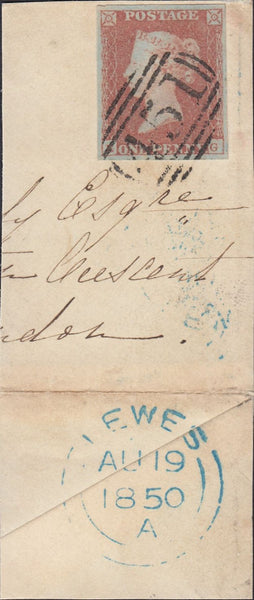 POSTAGE
ONE PENNY
G
451
Esqre
Crescent
LEWES
AU 19
1850
A